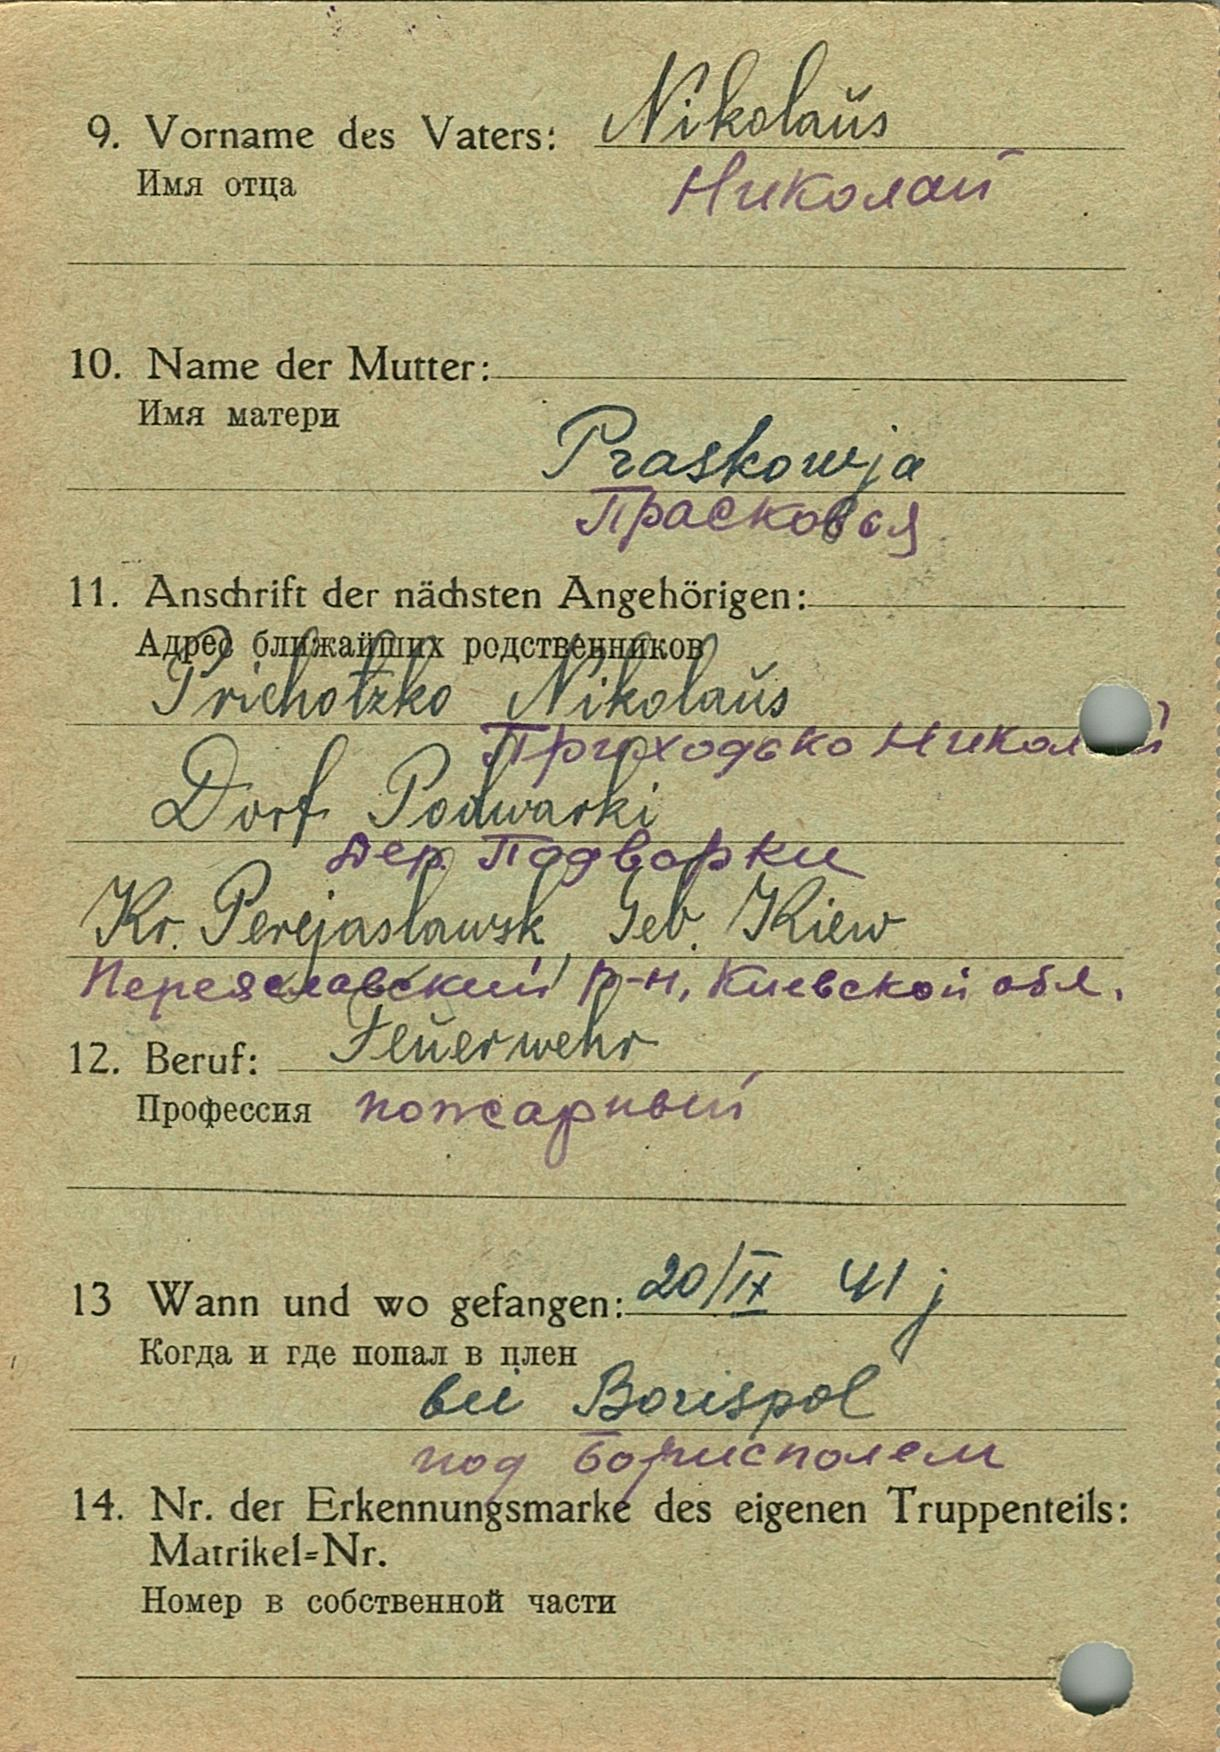 9. Vorname des Vaters: Nikolaŭs
Имя отца Николай
10. Name der Mutter:
Имя матери
Praskowja
Прасковья
11. Anschrift der nächsten Angehörigen:
Адрес ближайших родственников
Prichotzko Nikolaŭs
Приходько Николай
Dorf Podwarki
Дер. Подворки
Kr. Perejaslawsk, Geb. Kiew
Переяславский р-н, Киевской обл.
12. Beruf: Feŭerwehr
Профессия пожарный
13 Wann und wo gefangen: 20/IX 41 j
Когда и где попал в плен
bei Borispol
под Борисполем
14. Nr. der Erkennungsmarke des eigenen Truppenteils:
Matrikel=Nr.
Номер в собственной части